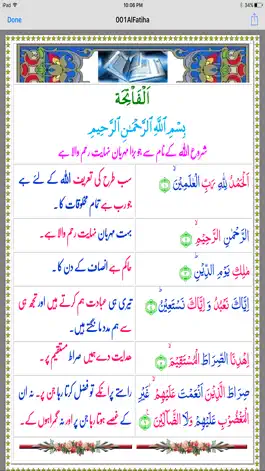 iPad 10:06 PM 54%
Done 001AlFatiha
اَلْفَاتِحَة
بِسْمِ اللّٰهِ الرَّحْمٰنِ الرَّحِيْمِ
شروع اللہ کے نام سے جو بڑا مہربان نہایت رحم والا ہے
اَلْحَمْدُ لِلّٰهِ رَبِّ الْعٰلَمِيْنَ ۙ
سب طرح کی تعریف اللہ کے لئے ہے
جو رب ہے تمام مخلوقات کا۔
الرَّحْمٰنِ الرَّحِيْمِ ۙ
بہت مہربان نہایت رحم والا ہے۔
مٰلِكِ يَوْمِ الدِّيْنِ ؕ
حاکم ہے انصاف کے دن کا۔
اِيَّاكَ نَعْبُدُ وَ اِيَّاكَ نَسْتَعِيْنُ ؕ
تیری ہی عبادت ہم کرتے ہیں اور تجھ ہی
سے ہم مدد مانگتے ہیں۔
اِهْدِنَا الصِّرَاطَ الْمُسْتَقِيْمَ ۙ
ہدایت دے ہمیں صراط مستقیم پر۔
صِرَاطَ الَّذِيْنَ اَنْعَمْتَ عَلَيْهِمْ ۙ غَيْرِ
الْمَغْضُوْبِ عَلَيْهِمْ وَلَا الضَّآلِّيْنَ
راستے پر انکے تو فضل کرتا رہا جن پر۔ نہ ان
کے غصے ہوتا رہا جن پر اور نہ گمراہوں کے۔